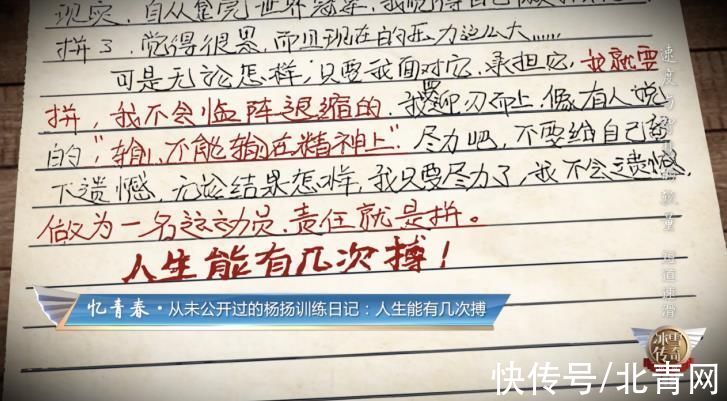 现实，自从拿完世界冠军，我觉得自己
拼了，觉得很累，而且现在的压力这么大……
可是无论怎样，只要我面对它、承担它，我就要
拼，我不会临阵退缩的，我迎刃而上，像有人说
的“输，不能输在精神上”。尽力吧，不要给自己留
下遗憾，无论结果怎样，我只要尽力了，我不会遗憾，
做为一名运动员，责任就是拼。
人生能有几次搏！
速度与智慧的较量 短道速滑
忆青春·从未公开过的杨扬训练日记：人生能有几次搏
冰雪传奇
快传号/北青网